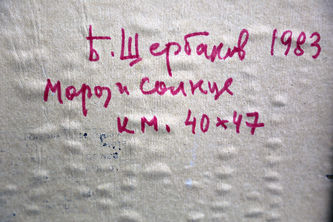 Б. Щербаков 1983
Мороз и солнце
К.М. 40×47